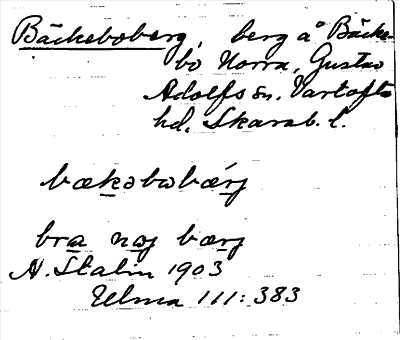 Bäckeboberg, berg å Bäcke-
bo Norra, Gustav
Adolfs sn. Vartofta
hd. Skarab. l.
bækəbobærj
bra nɷj bærj
A. Stalin 1903
Ulma 111:383